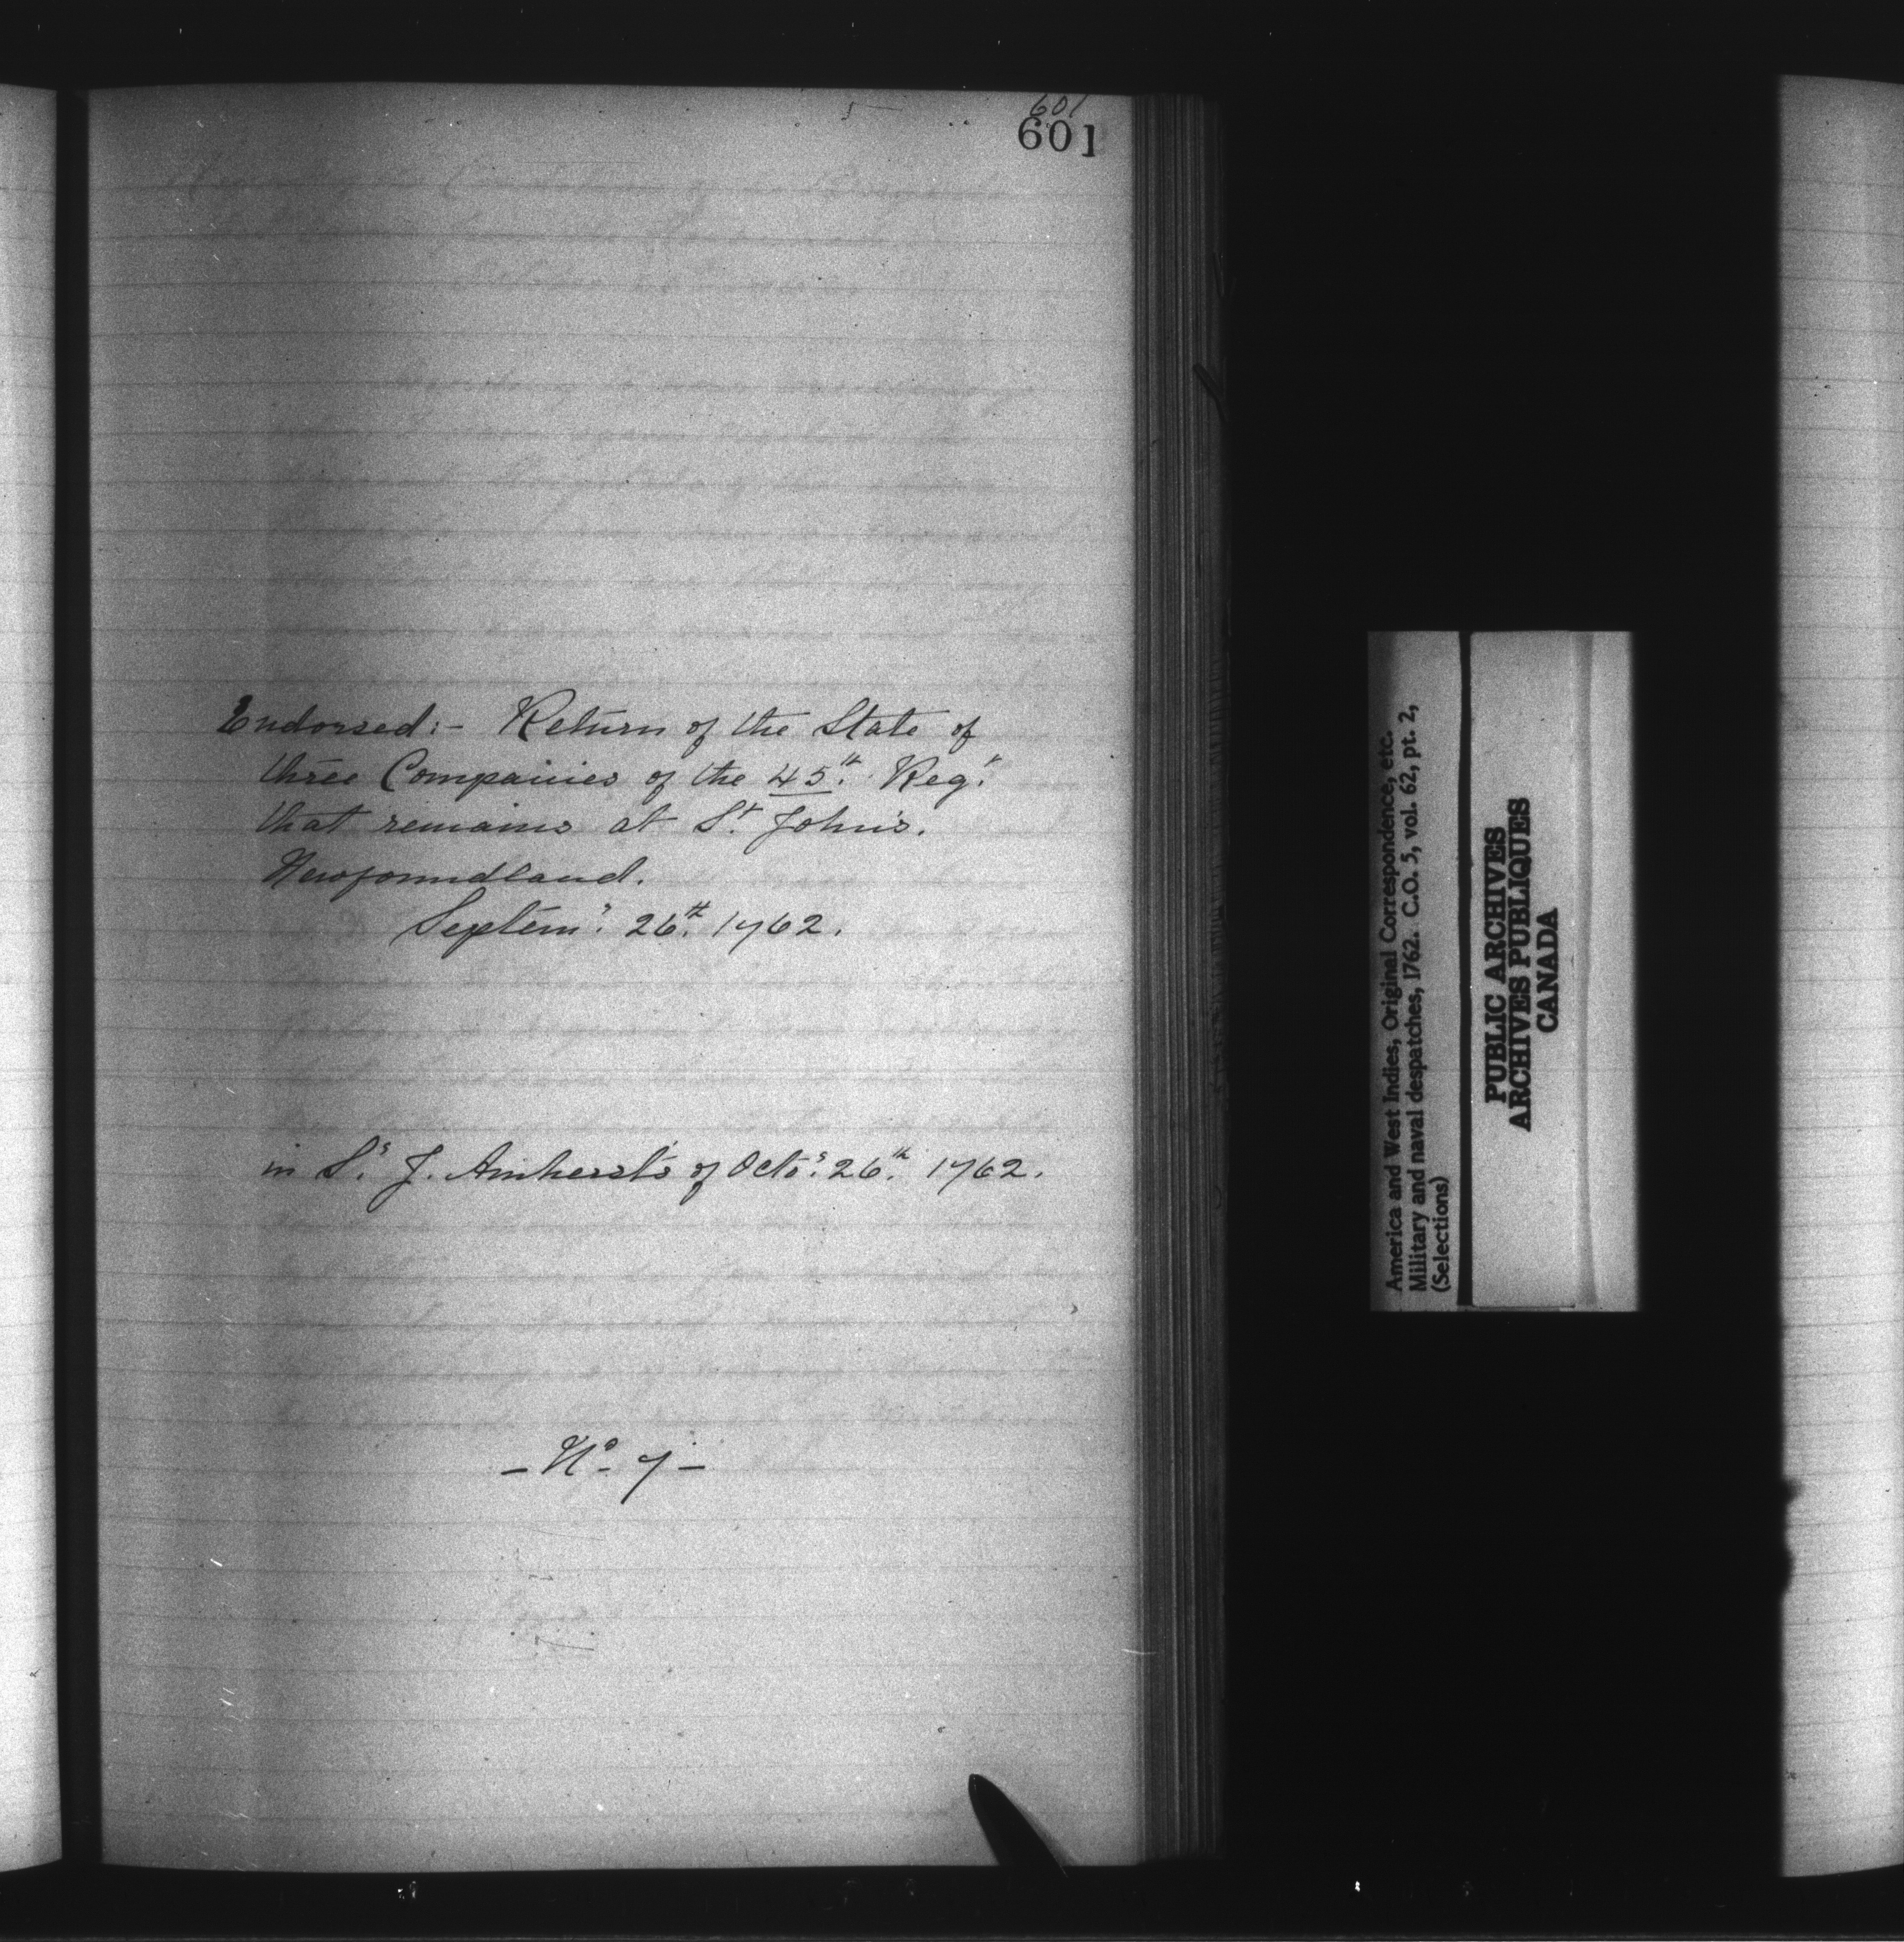 601
601
Endorsed:- Return of the State of
three Companies of the 45th. Regt.
that remains at St. John's.
Newfoundland.
Septemr. 26th. 1762.
in Sr. J. Amherst's of Octor. 26th. 1762.
- No. 7 -
America and West Indies, Original Correspondence, etc.
Military and naval despatches, 1762. C.O. 5, vol. 62, pt. 2,
(Selections)
PUBLIC ARCHIVES
ARCHIVES PUBLIQUES
CANADA